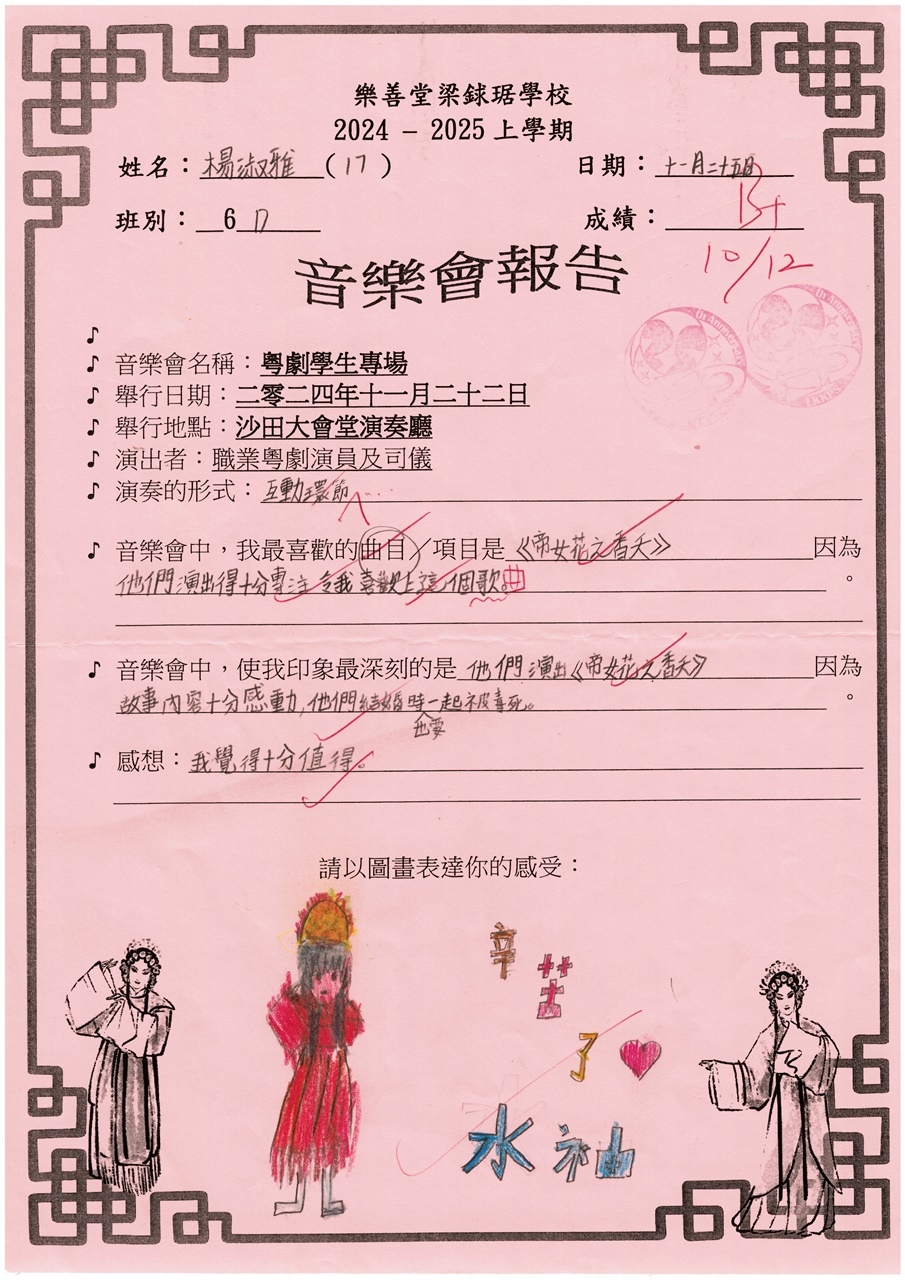 樂善堂梁銶琚學校
2024 – 2025 上學期
姓名：楊淑雅 (17) 日期：十一月二十五日
班別：6D 成績：B+
10/12
音樂會報告
♪
♪ 音樂會名稱：粵劇學生專場
♪ 舉行日期：二零二四年十一月二十二日
♪ 舉行地點：沙田大會堂演奏廳
♪ 演出者：職業粵劇演員及司儀
♪ 演奏的形式：互動環節
♪ 音樂會中，我最喜歡的曲目／項目是《帝女花之香夭》因為
他們演出得十分專注令我喜歡上這個歌曲。
♪ 音樂會中，使我印象最深刻的是 他們演出《帝女花之香夭》因為
故事內容十分感動，他們結婚時一起被毒死。
也要
♪ 感想：我覺得十分值得。
請以圖畫表達你的感受：
辛
苦
了
水袖